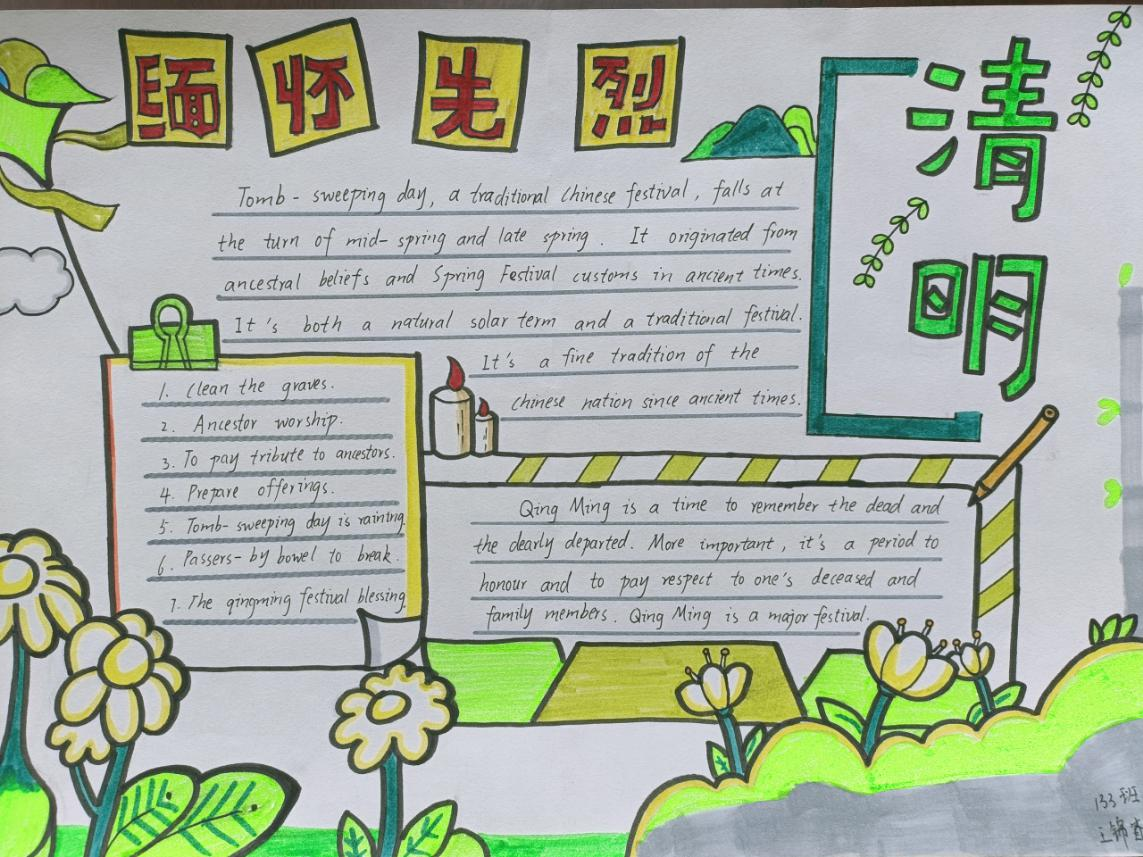 缅怀先烈
清明
Tomb-sweeping day, a traditional Chinese festival, falls at
the turn of mid-spring and late spring. It originated from
ancestral beliefs and Spring Festival customs in ancient times.
It's both a natural solar term and a traditional festival.
It's a fine tradition of the
Chinese nation since ancient times.
1. Clean the graves.
2. Ancestor worship.
3. To pay tribute to ancestors.
4. Prepare offerings.
5. Tomb-sweeping day is raining
6. Passers-by bowel to break.
7. The qingming festival blessing
Qing Ming is a time to remember the dead and
the dearly departed. More important, it's a period to
honour and to pay respect to one's deceased and
family members. Qing Ming is a major festival.
133班